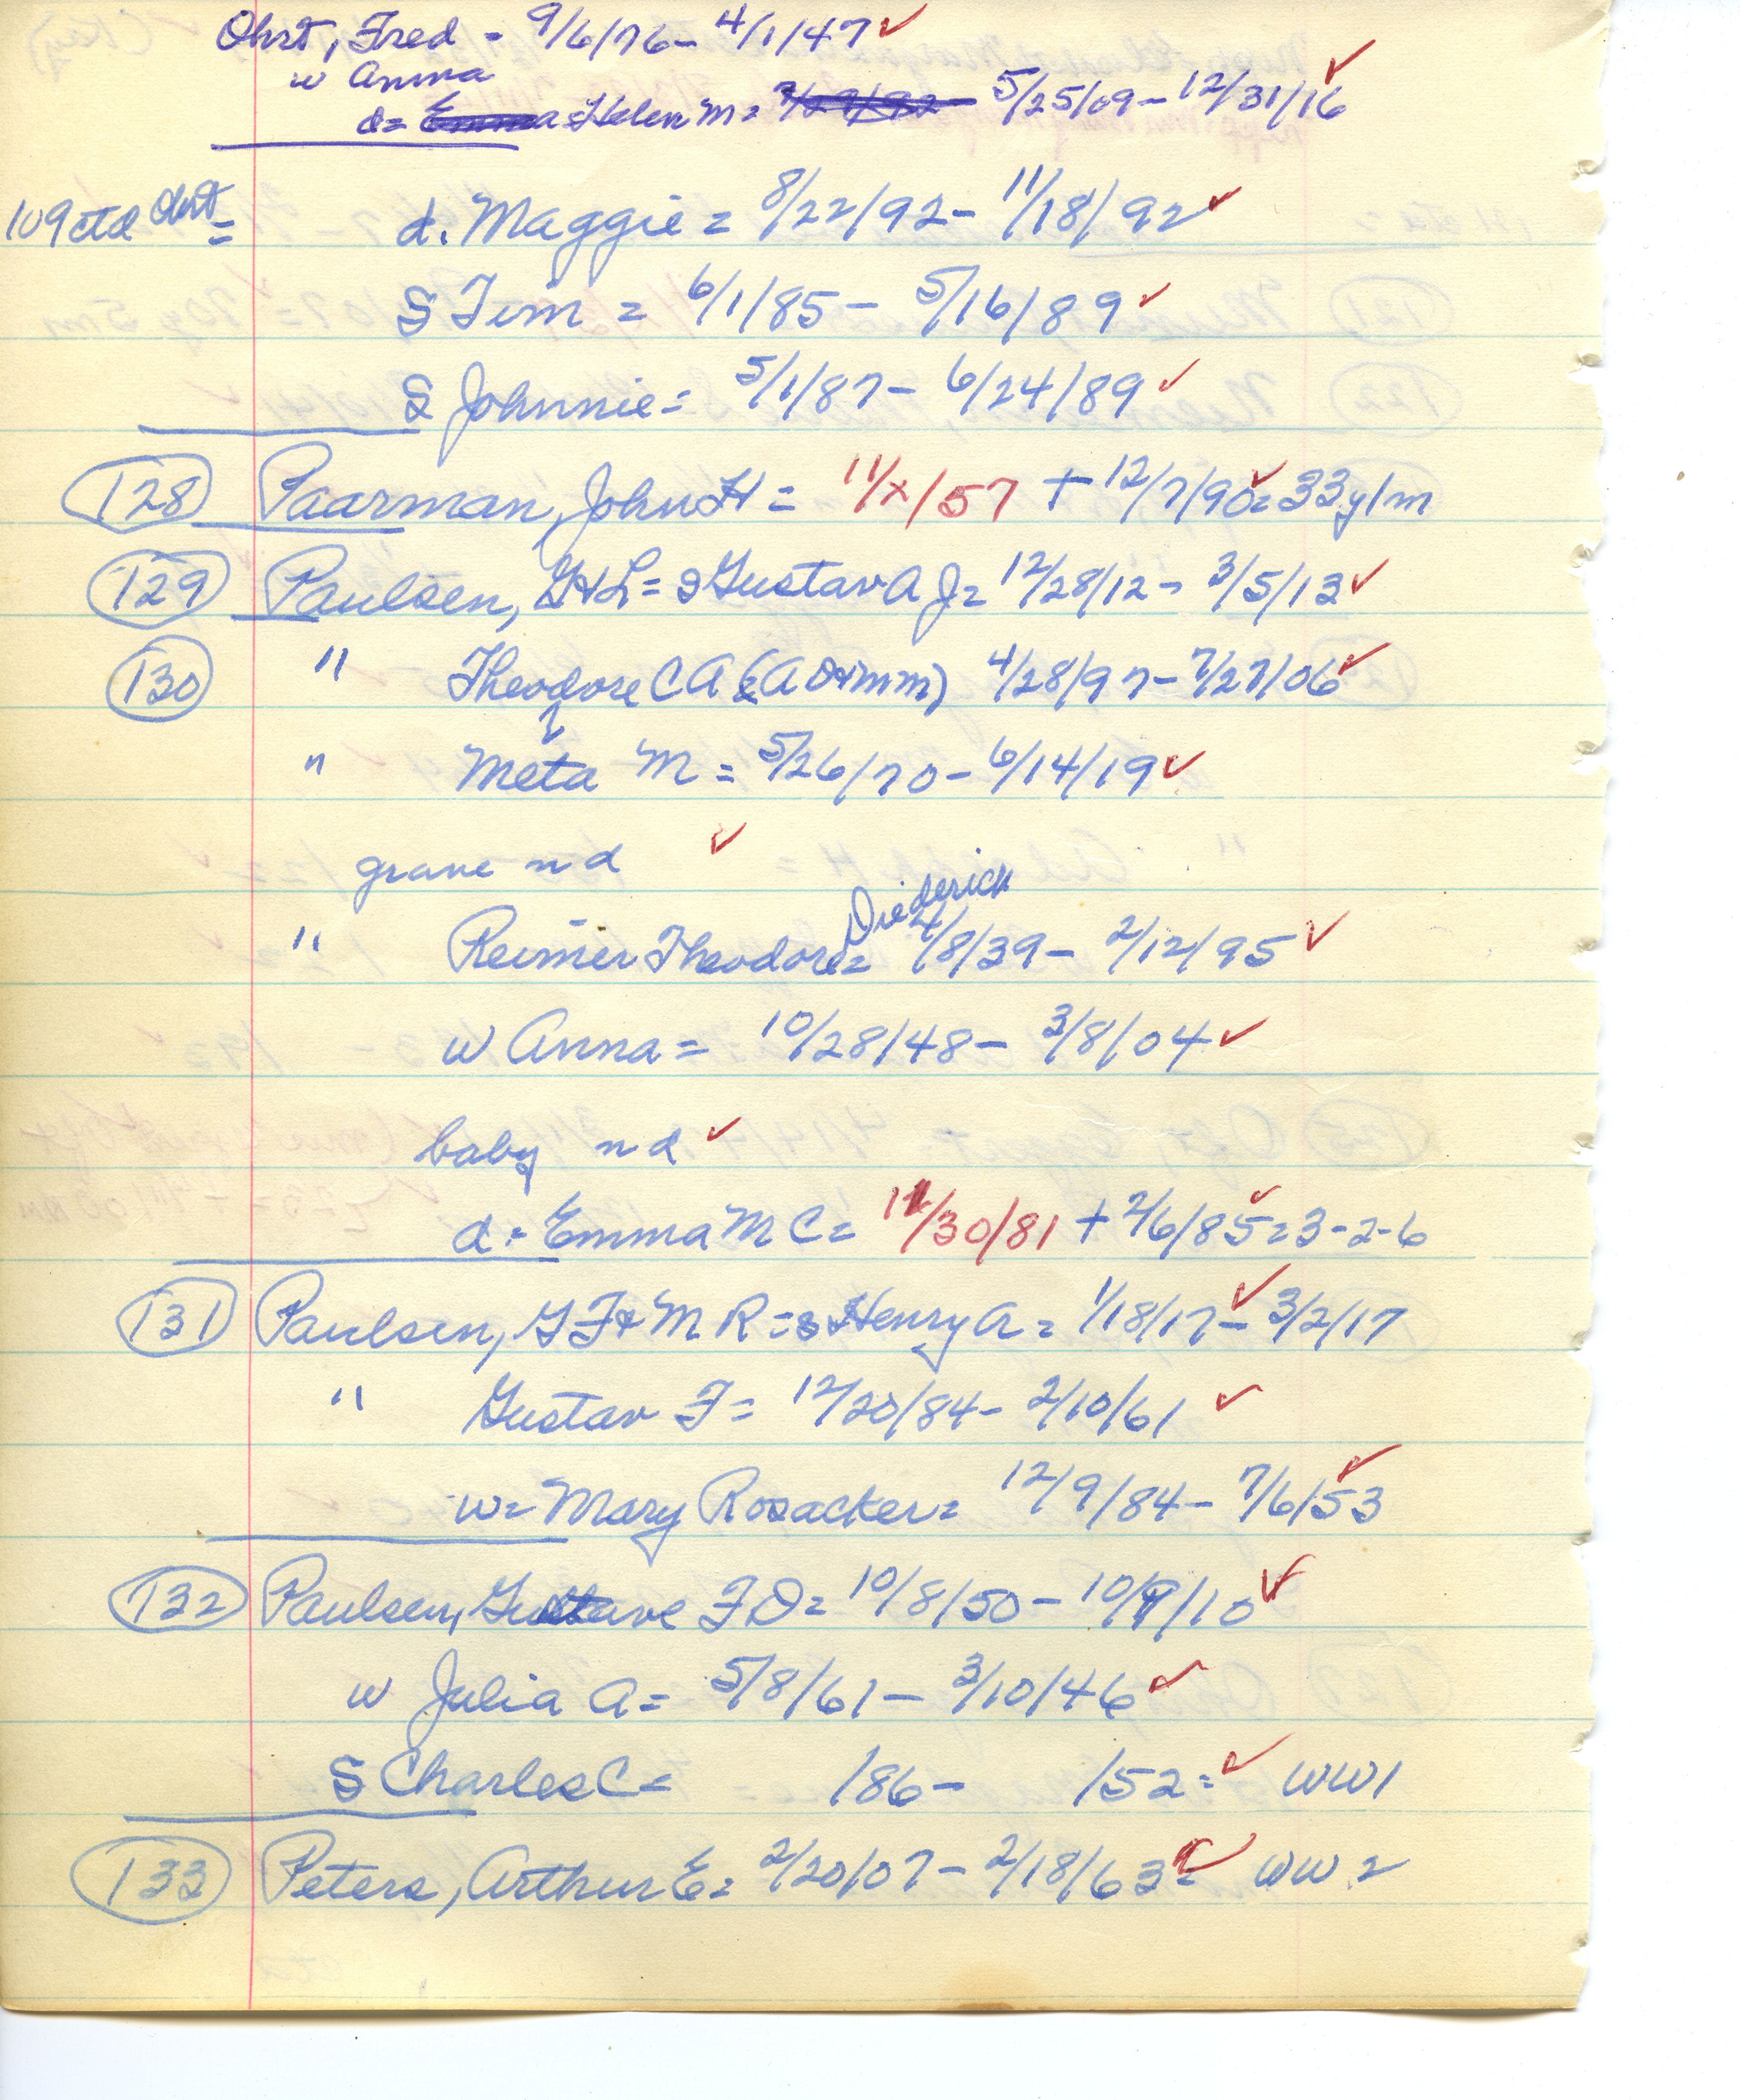 Ohrt, Fred - 9/6/76 - 4/1/47 ✓
w Anna
d = Emma Helen M = 3/29/92 5/25/09 - 12/31/16 ✓
109 ctd Ohrt = d. Maggie = 8/22/92 - 11/18/92 ✓
S Tim = 6/1/85 - 5/16/89 ✓
S Johnnie = 5/1/87 - 6/24/89 ✓
128 Paarman, John H = 11/x/57 + 12/7/90 ✓ = 33y1m
129 Paulsen, G & L = s Gustav A J = 12/28/12 - 3/5/13 ✓
130 " Theodore C A (A D & M M) 4/28/97 - 7/27/06 ✓
" Meta M = 5/26/70 - 6/14/19 ✓
grave n d ✓
Diederich
" Reimer Theodore = 4/8/39 - 2/12/95 ✓
w Anna = 10/28/48 - 3/8/04 ✓
baby n d ✓
d = Emma M C = 11/30/81 + 2/6/85 ✓ = 3-2-6
131 Paulsen, G F & M R = s Henry A = 1/18/17 ✓ - 3/2/17
" Gustav F = 12/20/84 - 2/10/61 ✓
w = Mary Rosacker = 12/9/84 - 7/6/53 ✓
132 Paulsen, Gustave F D = 10/8/50 - 10/9/10 ✓
w Julia A = 5/8/61 - 3/10/46 ✓
S Charles C = /86 - /52 = ✓ WW1
133 Peters, Arthur E = 2/20/07 - 2/18/63 = ✓ WW2